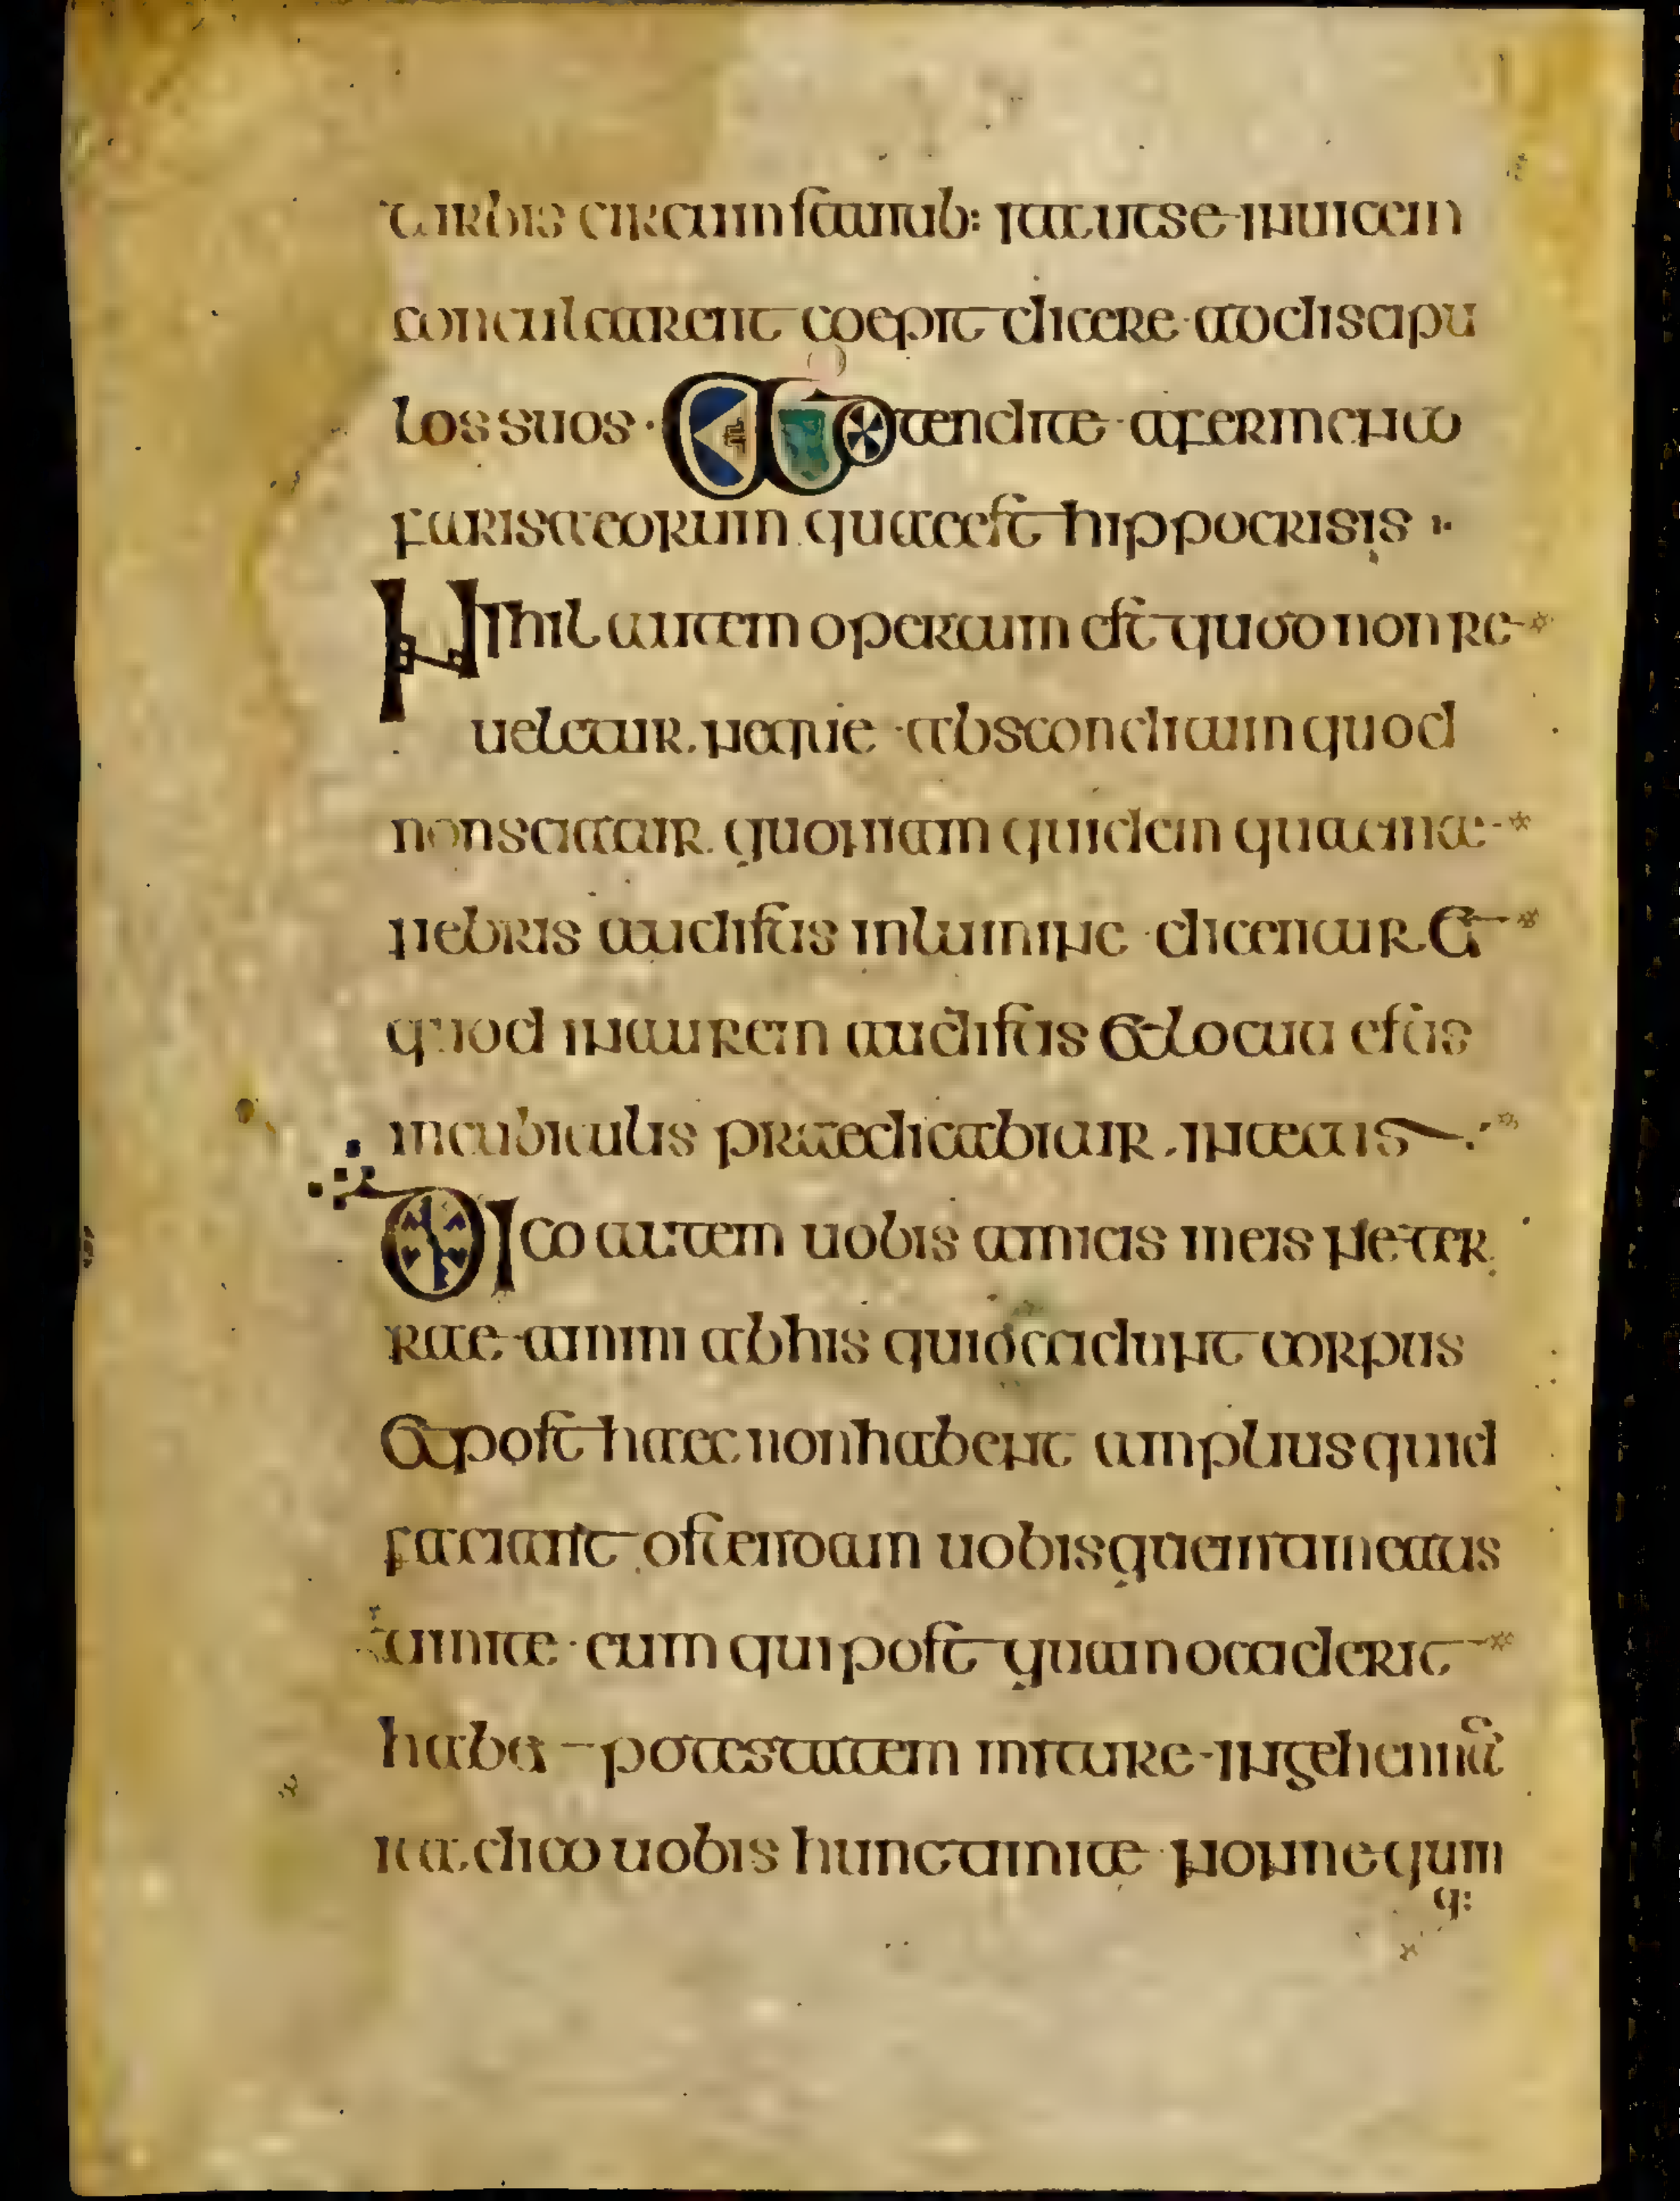 turbis circumstantib: ita ut se inuicem
conculcarent coepit dicere ad discipu
los suos · Attendite a fermento
farisaeorum quae est hippocrisis
Nihil autem opertum est quod non re
ueletur. neque absconditum quod
non sciatur. quoniam quidem quae in te
nebris audistis in lumine dicentur Et
quod in aurem audistis & locuti estis
in cubiculis praedicabitur. in tectis
Dico autem uobis amicis meis ne ter
rae amini ab his qui occidunt corpus
Et post haec non habent amplius quid
faciant ostendam uobis quem timeatus
timite · eum qui post quam occiderit
habet potestatem mittare in gehennā
ita dico uobis hunc timite nonne qum
q: